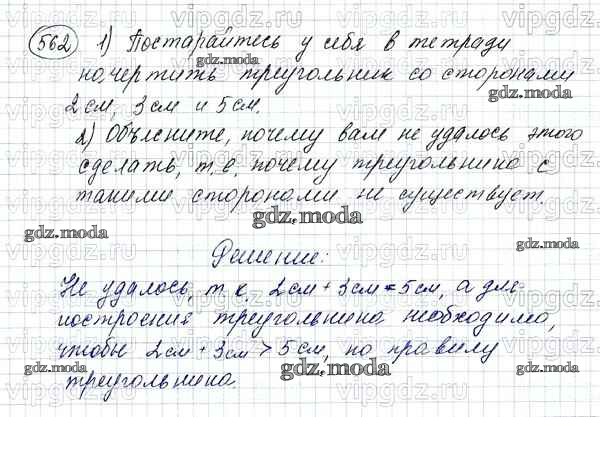 562 1) Постарайтесь у себя в тетради
начертить треугольник со сторонами
2 см, 3 см и 5 см.
2) Объясните, почему вам не удалось этого
сделать, т. е. почему треугольника с
такими сторонами не существует.
Решение:
Не удалось, т.к. 2 см + 3 см = 5 см, а для
построения треугольника необходимо,
чтобы 2 см + 3 см > 5 см, по правилу
треугольника.
gdz.moda
gdz.moda
gdz.moda
gdz.moda
gdz.moda
gdz.moda
gdz.moda
gdz.moda
vipgdz.ru